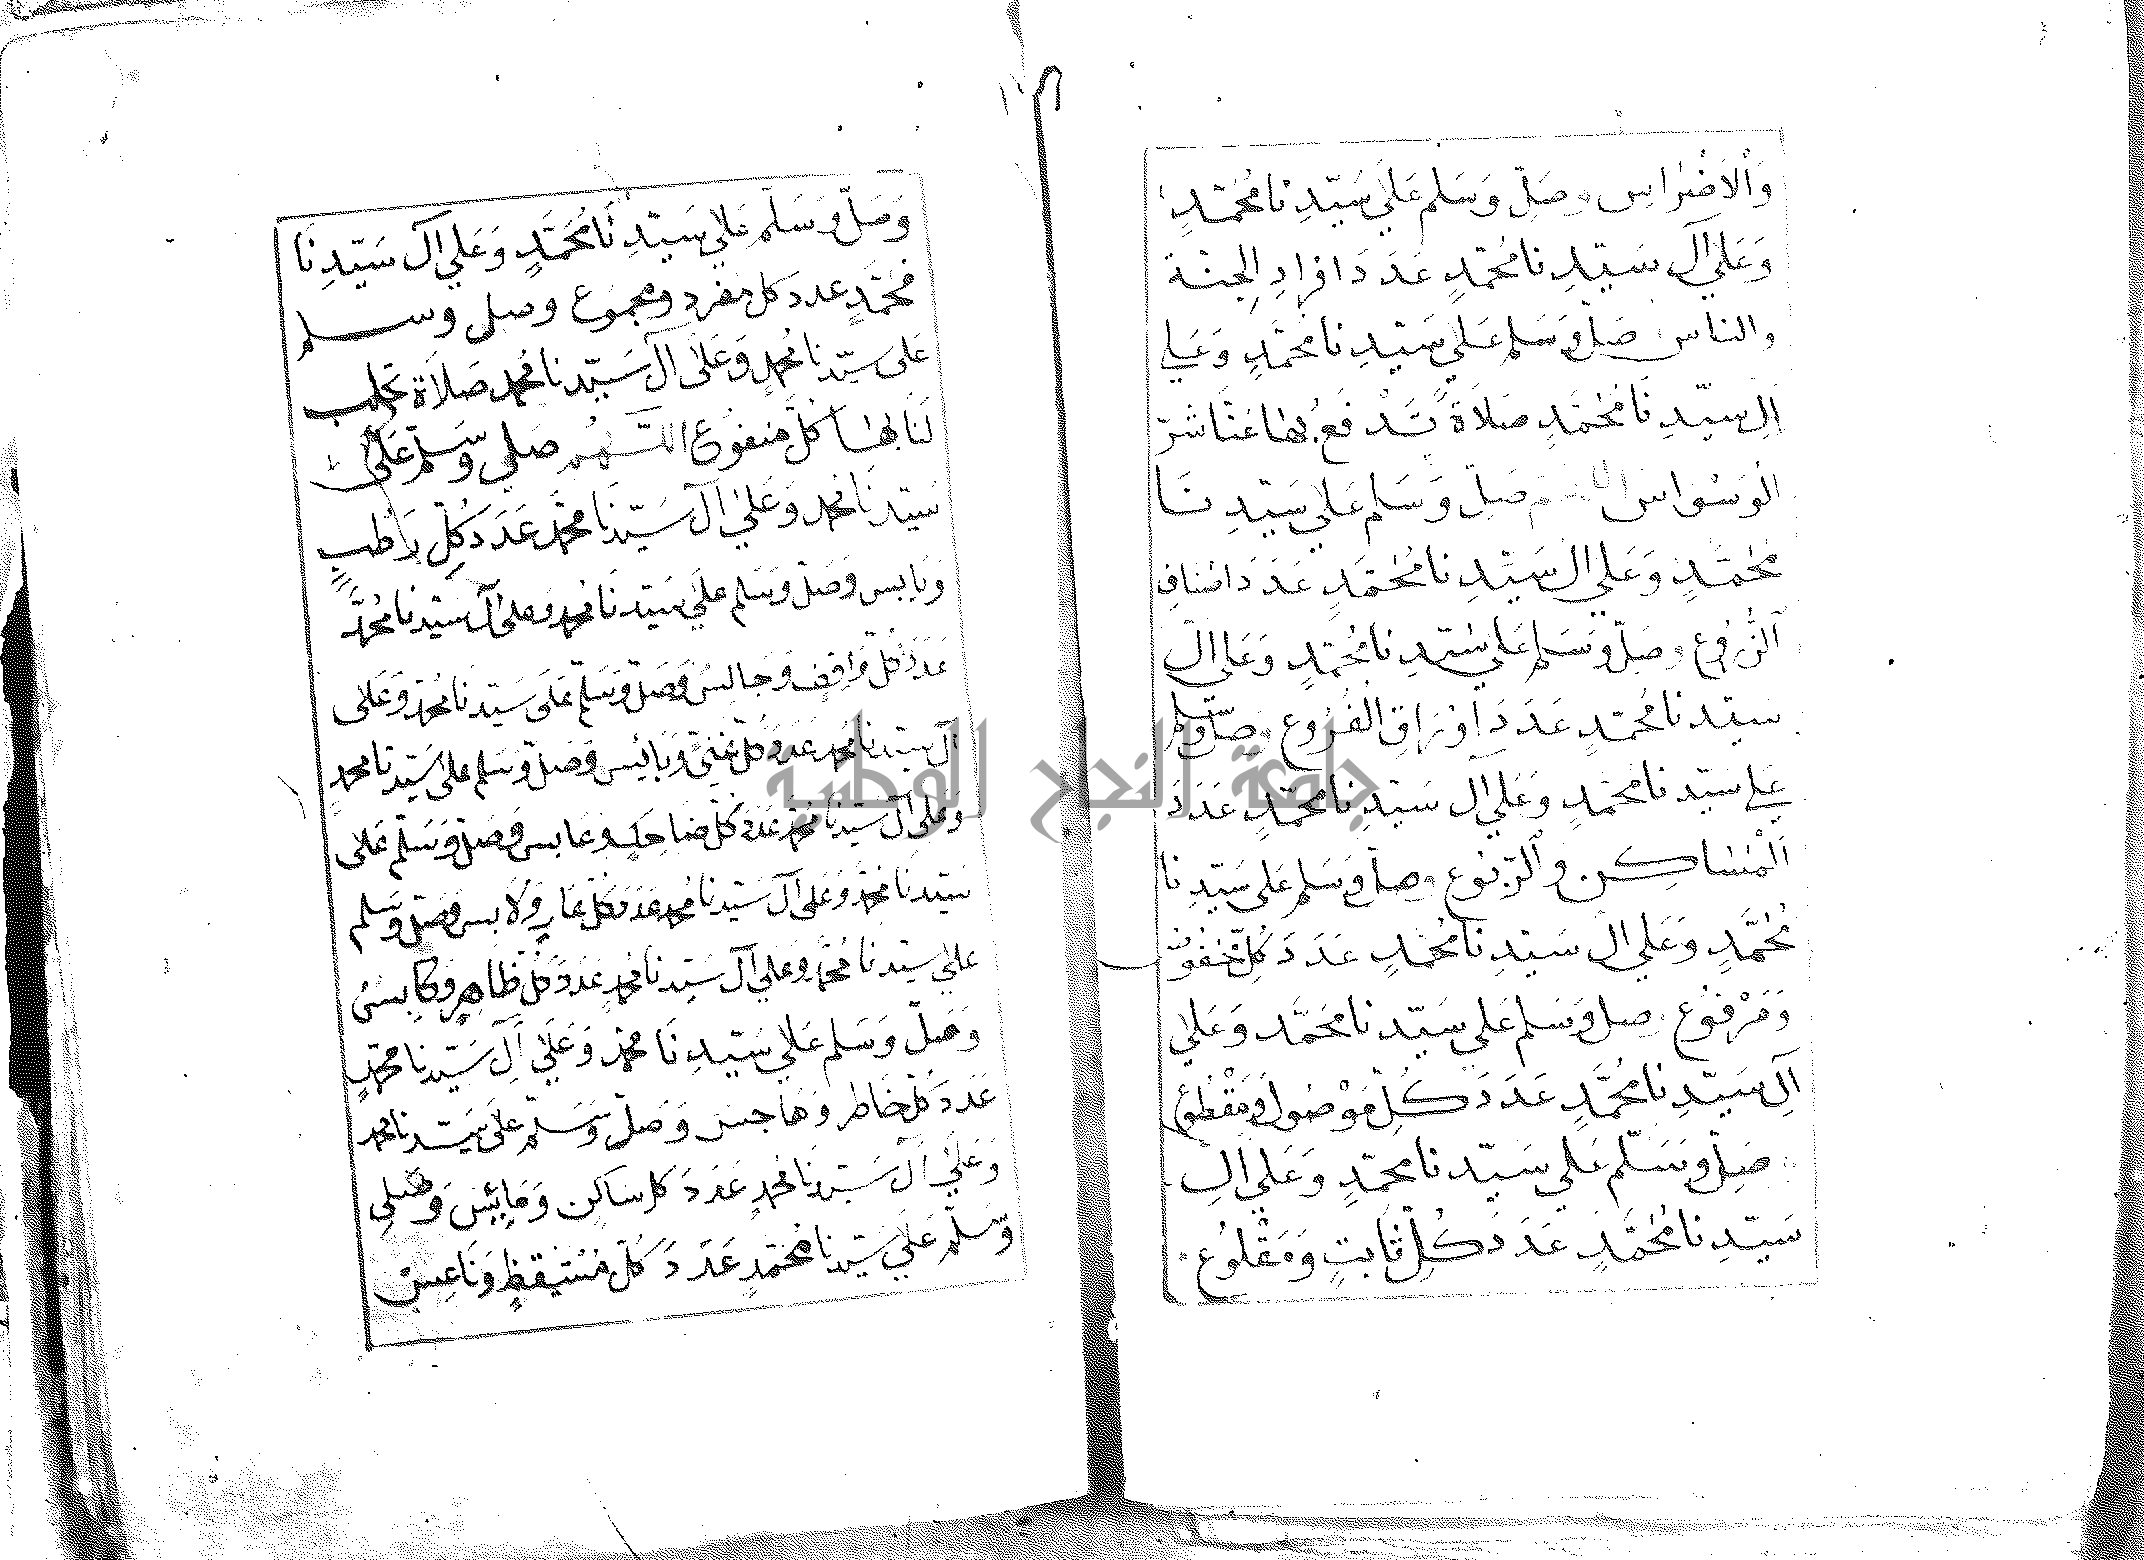 وَالْاَضْرَاسِ وصَلِّ وَسَلم عَلَي سَيّدِنا مُحَمَّدٍ
وَعَلي آلِ سَيّدِنا مُحمّدٍ عَدَدَ افرادِ الجِنة
والناسِ صَلّ وَسَلم عَلَي سَيّدِنا محَمّدٍ وَعَلي
الِ سيّدِنَا محَمّدٍ صَلَاةً تَدْفَعُ بِهَا عَنّا شَرّ
الوَسْوَاس اللهم صَلِّ وَسَلم عَلي سَيّدِنَا
مُحَمَّدٍ وَعَلي الِ سَيّدِنا مُحَمّدٍ عَدَدَ اصْنافِ
الزُّروع وصَلِّ وَسَلم عَلي سَيّدِنا مُحمّدٍ وَعَلى الِ
سيّدنا مُحَمّدٍ عَدَدَ اوْرَاقِ الفُرُوعِ وصَلّ وَسَلم
علي سَيّدنا محَمدٍ وعَلي آلِ سَيّدِنا محَمّدٍ عَدَدَ
الْمَسَاكِنِ وَالرّبُوعِ وصلّ وَسَلم عَلى سَيّدِنا
مُحَمَّدٍ وعَلي الِ سَيّدِنَا مُحَمّدٍ عَدَدَ كُلِّ مخْفُوضٍ
وَمَرْفوُعٍ صلّ وَسَلم عَلي سَيّدنا مُحَمَّد وَعَلي
آلِ سَيّدِنا مُحَمَّدٍ عَدَدَ كُلِّ مَوْصُولٍ وَمَقْطُوعٍ
صَلِّ وسَلّم عَلي سَيّدنا محَمّدٍ وَعَلي الِ
سَيّدِنا مُحَمَّدٍ عَدَدَ كُلِّ ثَابتٍ وَمَقْلوُعٍ
وَصَلِّ وسَلّم عَلي سَيّدِنَا مُحَمَّدٍ وَعَلي آلِ سَيّدِنَا
مُحَمّدٍ عدد كل مفرد ومجموع وصلي وسلم
عَلى سَيّدنا مُحَمدٍ وَعَلَى آل سَيّدنا مُحَمد صَلَاةً تجلب
لَنَا بهَا كُلَّ منفوع اللهم صَلي وسَلّم عَلَى
سَيّدنَا مُحَمد وَعَلَى آل سَيّدنَا محَمّد عَدَدَ كُلّ رَاطبٍ
وَيَابِس وصَلّ وَسَلم علَي سَيّدنَا مُحَمد وعلى آل سَيّدنا مُحَمّدٍ
عَدَدَ كُلّ وَاقِف وَجَالِس وَصَلّ وَسَلّم عَلَى سَيّدنَا مُحَمد وَعَلى
آل سيّدنا محمد عدد كلّ غنيّ وَبَائِس وَصَلّ وَسَلم علي سَيّدنا محمد
وَعَلى آل سَيّدنا محمد عَدَدَ كُلّ ضاحِكٍ وعَابس وصَلّ وَسَلّم عَلى
سَيّدنَا مُحَمد وَعَلى آل سَيّدنا مُحَمد عَدَدَ كُلّ عَارٍ وَلَابسٍ وَصَلّ وَسَلم
عَلي سَيّدنَا مُحَمد وَعلي آل سَيّدنا مُحَمدٍ عَدَدَ كُلّ ظاهِرٍ وَكَابِسٍ
وَصَلّ وَسَلم عَلي سَيّدِنَا مُحَمد وَعَلَي آلِ سَيّدِنا محَمّدٍ
عَدَدَ كُلّ خَاطِر وَهَاجِس وَصَلّ وسَلّم عَلى سَيّدنا محمد
وَعَلي آلِ سَيّدنَا مُحَمدٍ عَدَدَ كل سَاكِن وَمَايِسَ وَصَلي
وَسَلّم عَلَي سَيّدنا مُحَمّدٍ عَدَدَ كُلّ مُسْتَيقظٍ وَنَاعِسٍ
جامعة النجاح الوطنية